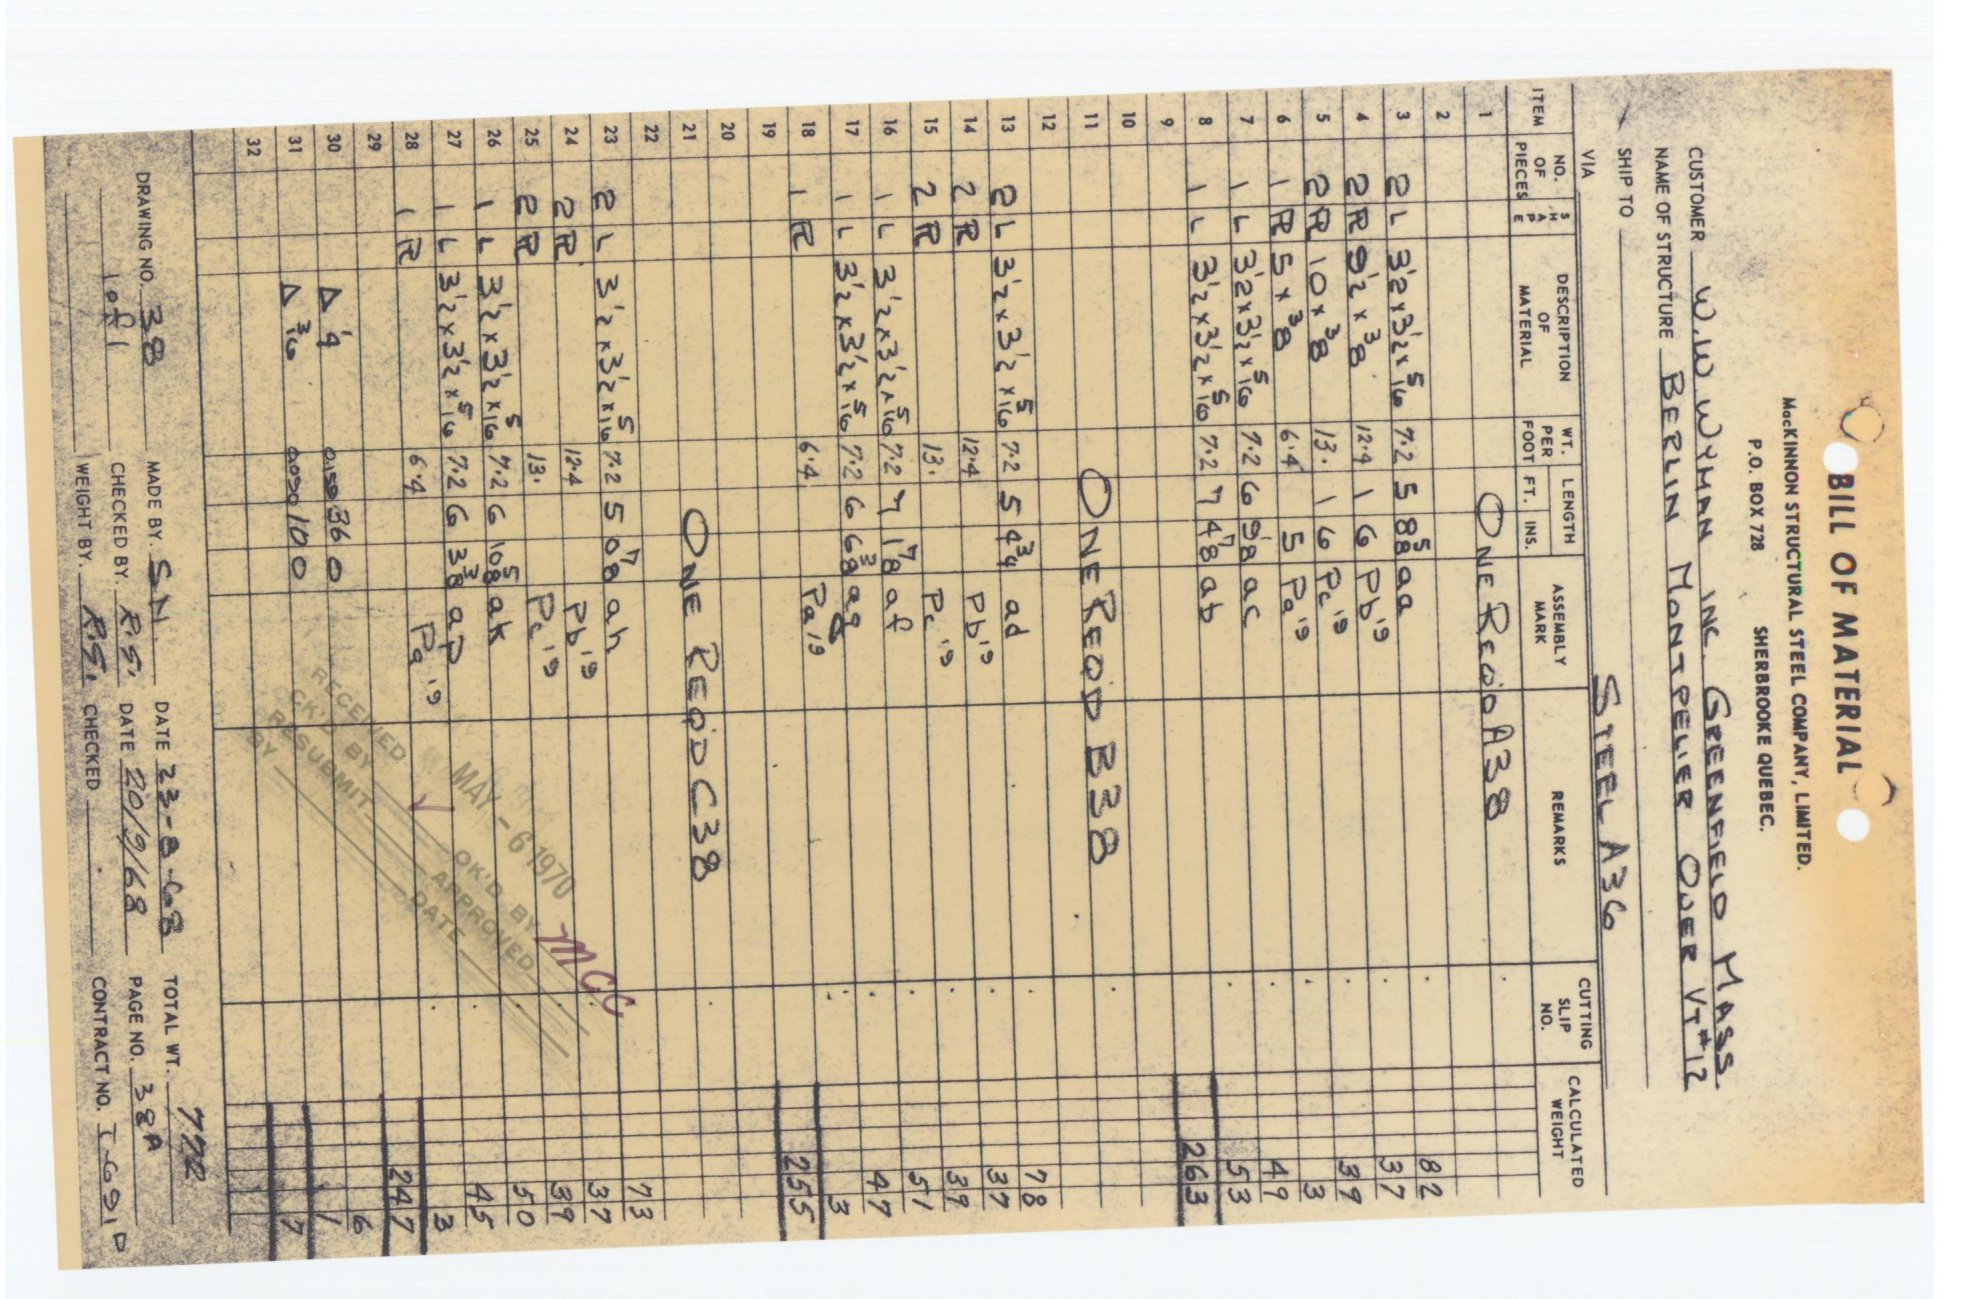 BILL OF MATERIAL
MacKINNON STRUCTURAL STEEL COMPANY, LIMITED.
P.O. BOX 728 SHERBROOKE QUEBEC.
CUSTOMER W.W WYMAN INC. GREENFIELD MASS.
NAME OF STRUCTURE BERLIN MONTPELIER OVER VT#12
SHIP TO
VIA STEEL A36
ITEM NO. OF PIECES SHAPE DESCRIPTION OF MATERIAL WT. PER FOOT LENGTH FT. INS. ASSEMBLY MARK REMARKS CUTTING SLIP NO. CALCULATED WEIGHT
1 ONE REQ'D A38
2
3 2 L 3 1/2 x 3 1/2 x 5/16 7.2 5 8 5/8 aa 82
4 2 PL 9 1/2 x 3/8 12.4 1 6 Pb'19 37
5 2 PL 10 x 3/8 13. 1 6 Pc'19 39
6 1 PL 5 x 3/8 6.4 5 Pa'19 3
7 1 L 3 1/2 x 3 1/2 x 5/16 7.2 6 9 1/8 ac 49
8 1 L 3 1/2 x 3 1/2 x 5/16 7.2 7 4 7/8 ab 53
9 263
10
11 ONE REQ'D B38
12
13 2 L 3 1/2 x 3 1/2 x 5/16 7.2 5 4 3/4 ad 78
14 2 PL 12.4 Pb'19 37
15 2 PL 13. Pc'19 39
16 1 L 3 1/2 x 3 1/2 x 5/16 7.2 7 1 7/8 af 51
17 1 L 3 1/2 x 3 1/2 x 5/16 7.2 6 6 3/8 ag 47
18 1 PL 6.4 Pa'19 3
19 255
20
21 ONE REQ'D C38
22
23 2 L 3 1/2 x 3 1/2 x 5/16 7.2 5 0 7/8 ah 73
24 2 PL 12.4 Pb'19 37
25 2 PL 13. Pc'19 39
26 1 L 3 1/2 x 3 1/2 x 5/16 7.2 6 10 5/8 ak 50
27 1 L 3 1/2 x 3 1/2 x 5/16 7.2 6 3 3/8 ap 45
28 1 PL 6.4 Pa'19 3
29 247
30 Δ 1/4 36 0 6
31 Δ 3/16 10 0 1
32 7
RECEIVED MAY -6 1970
CK'D BY OK'D BY MCC
RESUBMIT APPROVED
BY DATE
DRAWING NO. 38 MADE BY. SN DATE 23-8-68 TOTAL WT. 772
1 of 1 CHECKED BY. R.S. DATE 20/9/68 PAGE NO. 38A
WEIGHT BY. R.S. CHECKED CONTRACT NO. T-691D